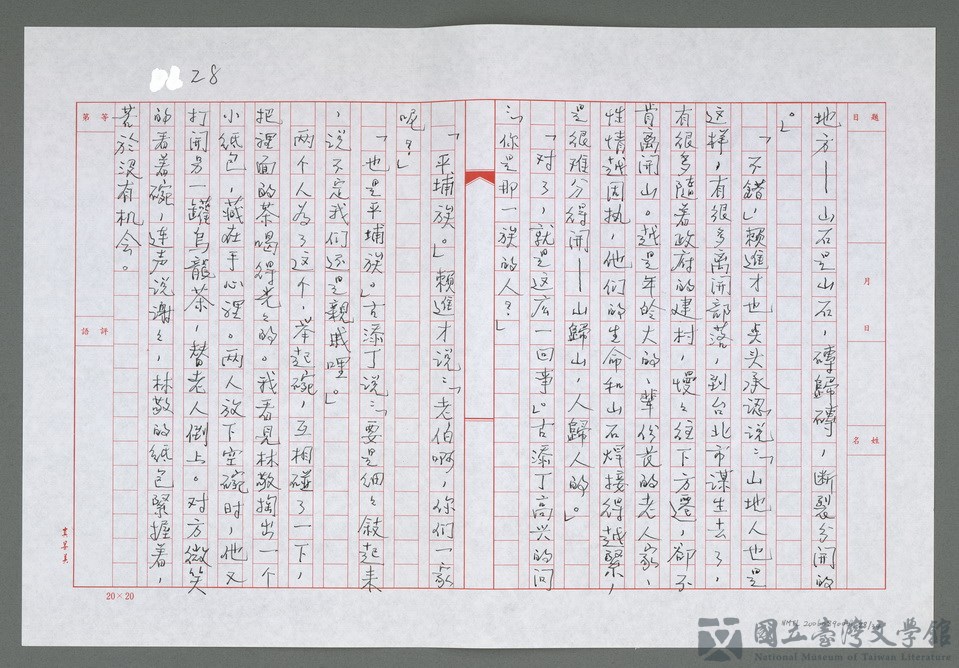 28
題目
月 日
姓名
等第
評語
地方——山石是山石，磚歸磚，断裂分開的
。」
「不錯」，賴進才也点头承認说：「山地人也是
这样，有很多離開部落，到台北市謀生去了，
有很多隨着政府的建村，慢々往下方遷，卻不
肯離開山。越是年於大的、輩份茂的老人家、
性情越固执，他们的生命和山石焊接得越緊，
是很难分得開——山歸山，人歸人的。」
「对了，就是这広一回事」。古添丁高兴的问
：「你是那一族的人？」
「平埔族。」賴進才说：「老伯啊，你们一家
呢？」
「也是平埔族。」古添丁说：「要是细々敍起来
，说不定我们还是親戚哩。」
两个人為了这个，举起碗，互相碰了一下，
把裡面的茶喝得光々的。我看見林敬掏出一个
小纸包，藏在手心裡。两人放下空碗时，他又
打開另一鑵烏龍茶，替老人倒上。对方微笑
的看着碗，连声说谢々，林敬的纸包緊握着，
苦於没有机会。
20×20
國立臺灣文學館
National Museum of Taiwan Literature